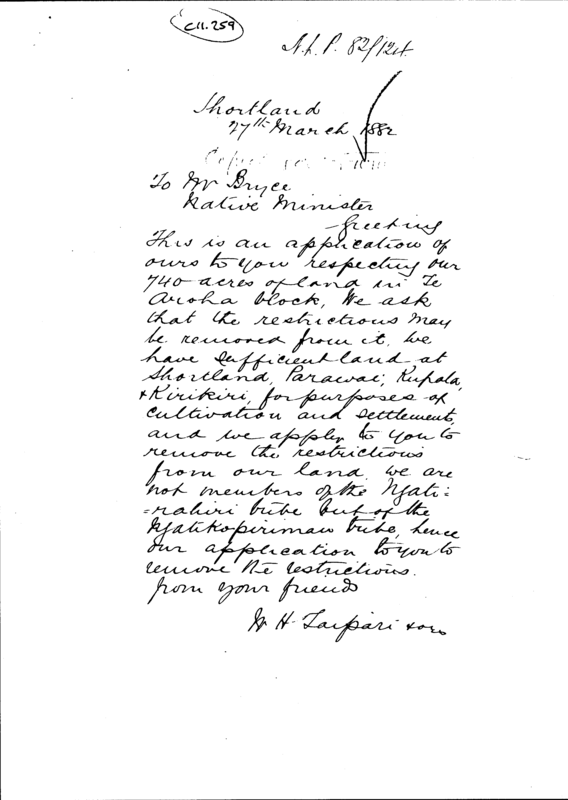 C11.259
N.L.P. 82/124
Shortland
27th March 1882
To Mr Bryce
Native Minister
Greeting
This is an application of
ours to you respecting our
740 acres of land in Te
Aroha block, We ask
that the restrictions may
be removed from it. We
have sufficient land at
Shortland, Parawai, Kupata,
& Kirikiri, for purposes of
cultivation and settlement,
and we apply to you to
remove the restrictions
from our land. We are
not members of the Ngati=
=rahiri tribe but of the
Ngatikopirimau tribe, hence
our application to you to
remove the restrictions.
from your friends
W H Taipari & ors